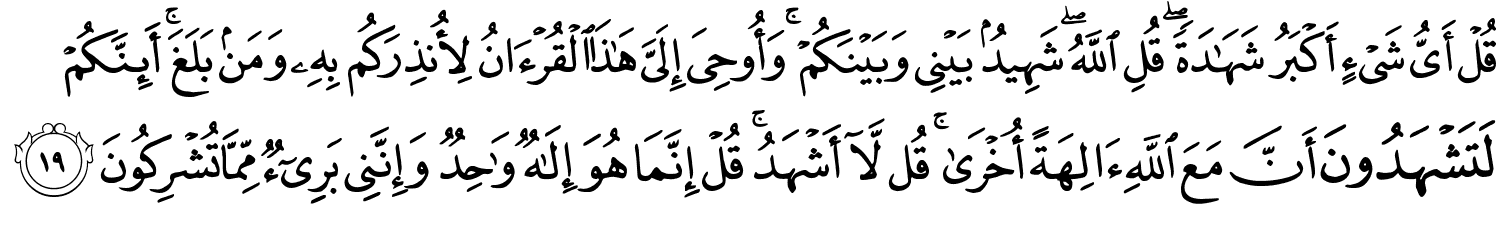 قُلۡ أَيُّ شَيۡءٍ أَكۡبَرُ شَهَٰدَةٗۖ قُلِ ٱللَّهُۖ شَهِيدُۢ بَيۡنِي وَبَيۡنَكُمۡۚ وَأُوحِيَ إِلَيَّ هَٰذَا ٱلۡقُرۡءَانُ لِأُنذِرَكُم بِهِۦ وَمَنۢ بَلَغَۚ أَئِنَّكُمۡ
لَتَشۡهَدُونَ أَنَّ مَعَ ٱللَّهِ ءَالِهَةً أُخۡرَىٰۚ قُل لَّآ أَشۡهَدُۚ قُلۡ إِنَّمَا هُوَ إِلَٰهٞ وَٰحِدٞ وَإِنَّنِي بَرِيٓءٞ مِّمَّا تُشۡرِكُونَ ١٩